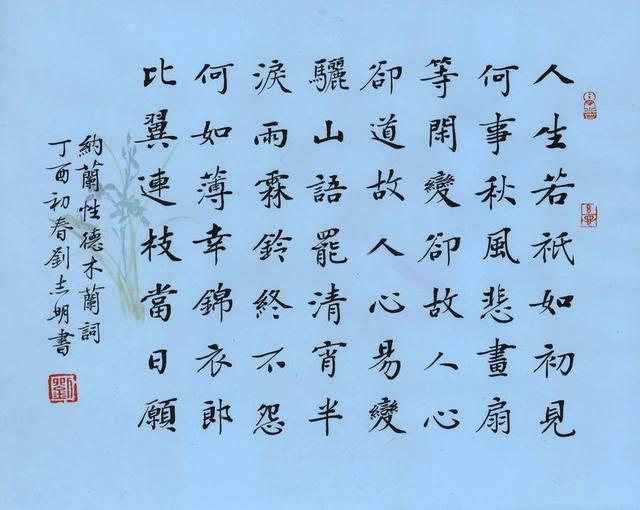 人生若祇如初見
何事秋風悲畫扇
等閑變卻故人心
卻道故人心易變
驪山語罷清宵半
淚雨霖鈴終不怨
何如薄幸錦衣郎
比翼連枝當日願
納蘭性德木蘭詞
丁酉初春劉志明書
劉